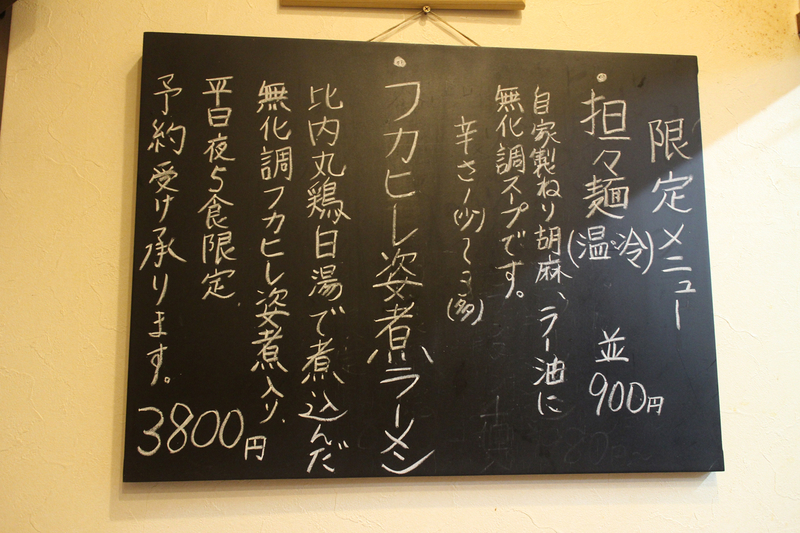 限定メニュー
担々麺(温・冷) 並900円
自家製ねり胡麻、ラー油に
無化調スープです。
辛さ1(少)〜3(多)
フカヒレ姿煮ラーメン
比内丸鶏白湯で煮込んだ
無化調フカヒレ姿煮入り、
平日夜5食限定
予約受け承ります。
3800円